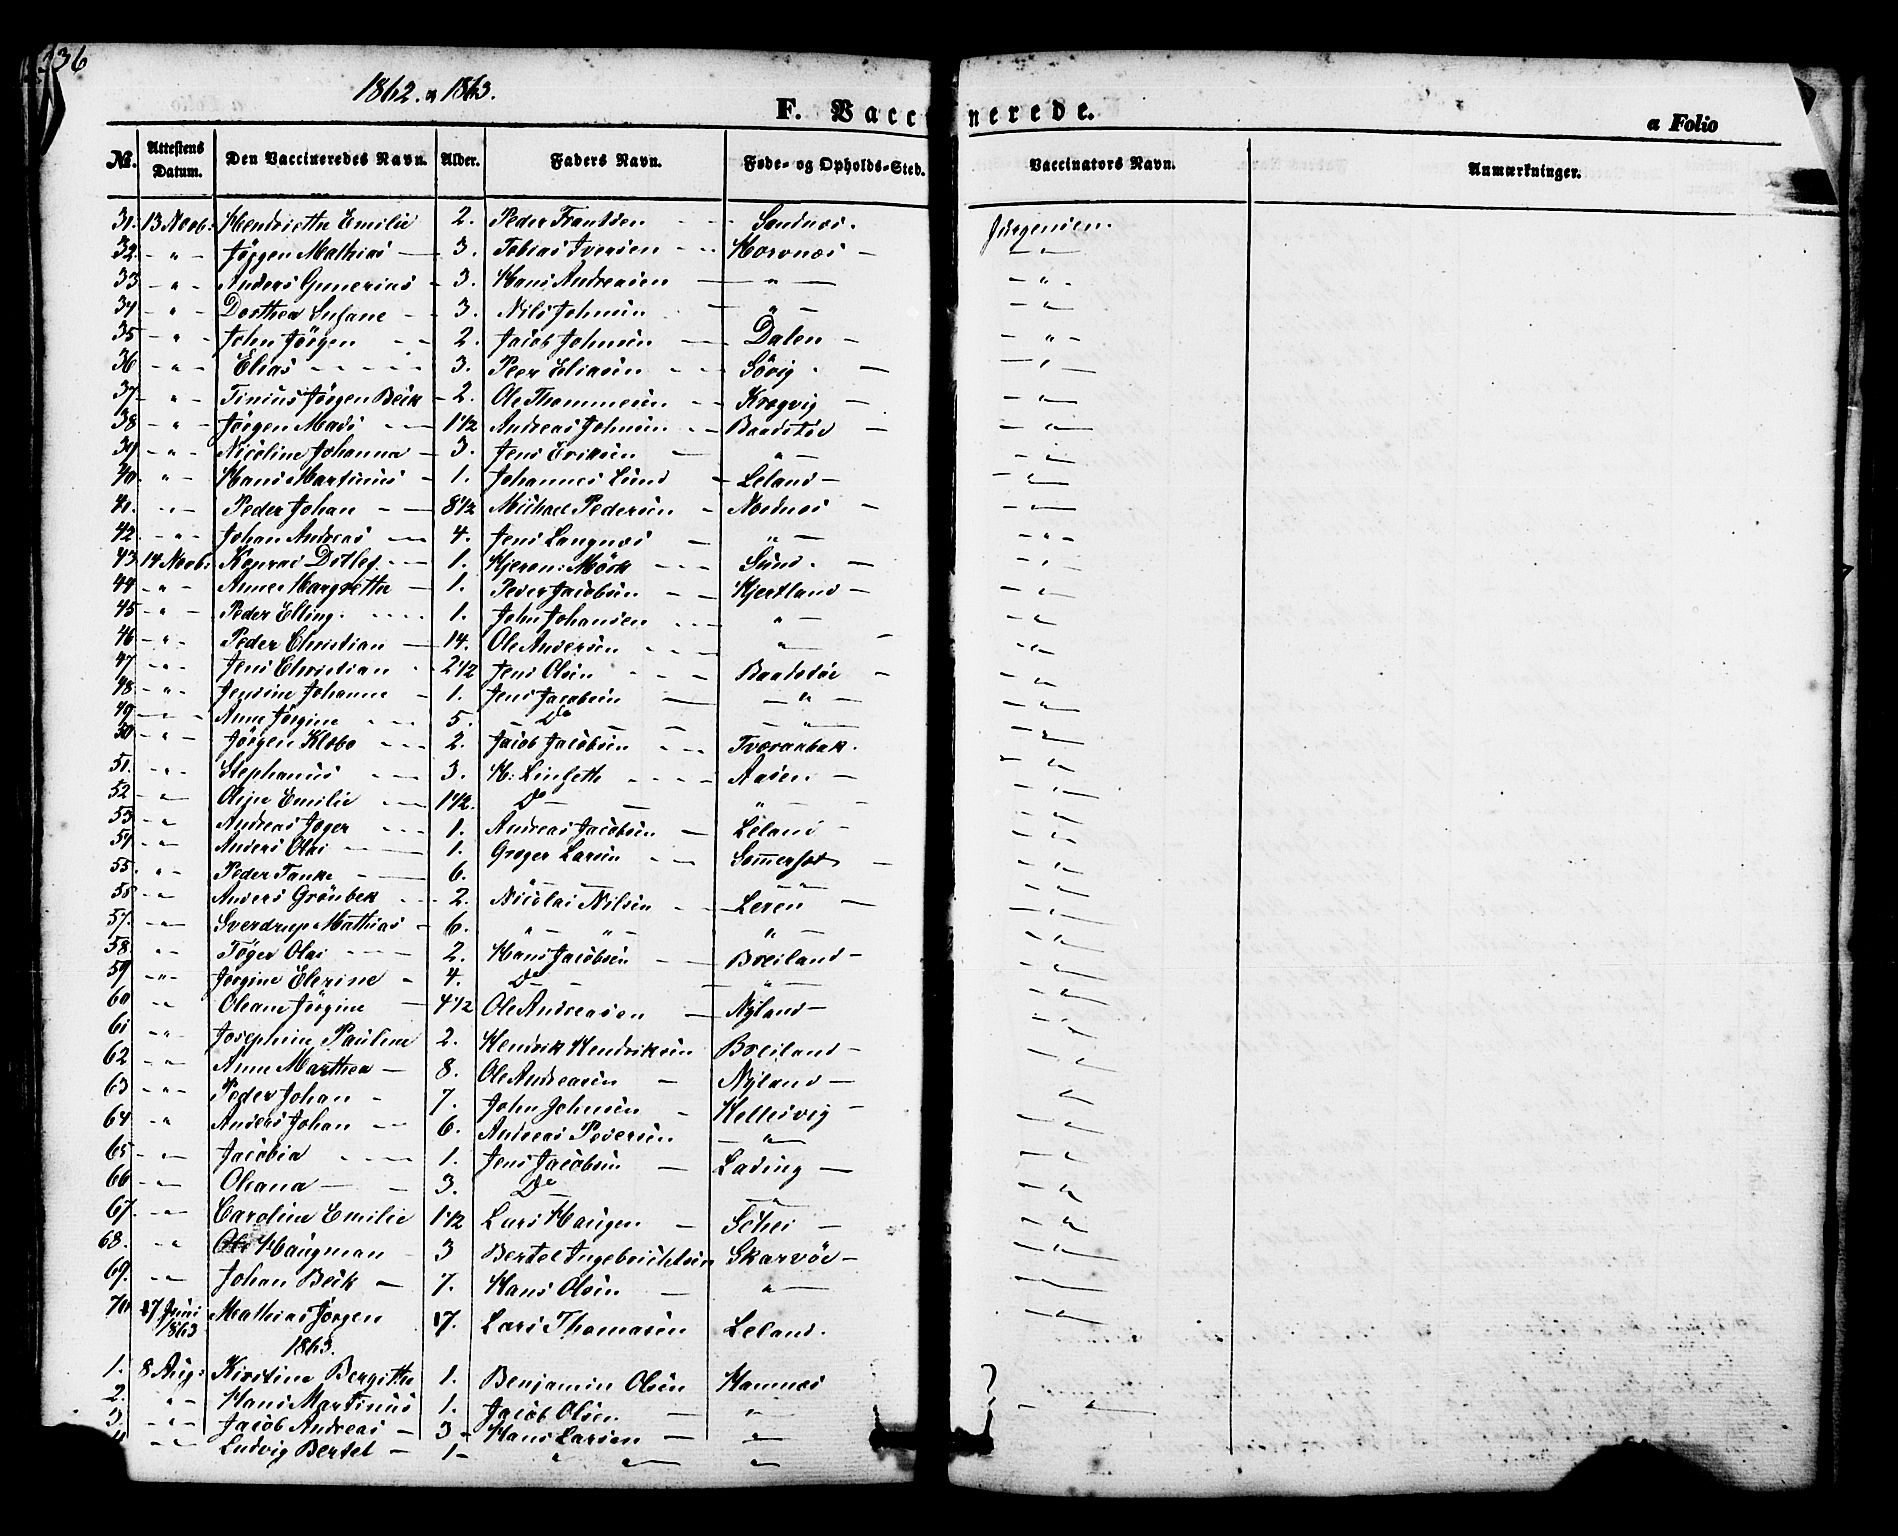 36
1862. & 1863.
F. Vaccinerede.
a Folio
Nr. Attestens Datum. Den Vaccineredes Navn. Alder. Faders Navn. Føde- og Opholds-Sted. Vaccinators Navn. Anmærkninger.
31. 13 Novb: Hendriethe Emilie 2. Peder Frantsen Sandnæs. Jürgensen.
32. " Jørgen Mathias 3. Tobias Iversen Horvnæs "
33 " Anders Gunerius 3. Hans Andreasen " "
34 " Dorthea Susane 3. Nils Johnsen " "
35 " John Jörgen 2. Jacob Johnsen Dalen "
36 " Elias 3. Peer Eliasen Sövig "
37 " Tinius Jörgen Beck 2. Ole Thommesen Krogvig "
38 " Jörgen Mads 1 1/2 Andreas Johnsen Baadstöe "
39 " Nicoline Johanna 3. Jens Eriksen " "
40 " Hans Martinus 1. Johannes Lund Leland "
41. " Peder Johan 8 1/2 Michael Pedersen Nordnæs "
42. " Johan Andreas 4. Jens Langnæs " "
43 14 Novb: Konrad Ditlef 1. Hjeron: Mörk Sund. "
44 " Anne Margrethe 1. Peder Jacobsen Hjertland "
45 " Peder Elling. 1. John Johansen " "
46 " Peder Christian 14. Ole Andersen " "
47 " Jens Christian 2 1/2 Jens Olsen Baadstöe "
48 " Jensine Johanne 1. Jens Jacobsen " "
49 " Anne Jörgine 5. Do " "
50 " Jörgen Klæbo 2. Jacob Jacobsen Tværaabak. "
51. " Stephanus 3. H: Linseth Aasen "
52 " Oline Emilie 1 1/2. Do " "
53 " Andreas Jöger 1. Andreas Jacobsen Leland "
54 " Anders Olai 1. Greger Larsen Sommerset "
55. " Peder Tanke 6. " " "
56 " Anders Grönbek 2. Nicolai Nilsen Leren "
57. " Sverdrup Mathias 6. " " " "
58. " Töger Olai 2. Hans Jacobsen Breiland "
59 " Jörgine Elerine 4. Do " "
60 " Oleane Jörgine 4 1/2 Ole Andreasen Nyland "
61 " Josephine Pauline 2. Hendrik Hendriksen Breiland "
62 " Anne Marthea 8. Ole Andreasen Nyland "
63 " Peder Johan 7. John Johnsen Hellesvig "
64 " Anders Johan 6. Andreas Pedersen " "
65 " Jacobia 1. Jens Jacobsen Lading "
66 " Oleana 3. Do " "
67. " Caroline Emilie 1 1/2 Lars Haugen Schei "
68. " Haugman 3 Bertel Ingebrichtsen Skarvöe "
69. " Johan Beck 7. Hans Olsen " "
70 17 Juni 1863 Mathias Jörgen 17. Lars Thomasen Leland. "
1863.
1. 8 Aug: Kirstine Bergitte 1. Benjamin Olsen Hamnæs ?
2. " Hans Martinus 1. Jacob Olsen " "
3. " Jacob Andreas 3 Hans Larsen "
" Ludvig Bertel 1 " " "